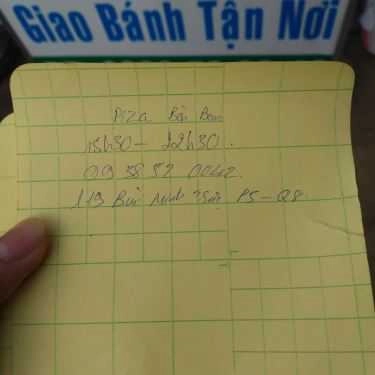 Giao Bánh Tận Nơi
Piza Bon Bon
15h30 - 22h30.
09 38 52 0042
119 Bùi Minh Trực P5 - Q8